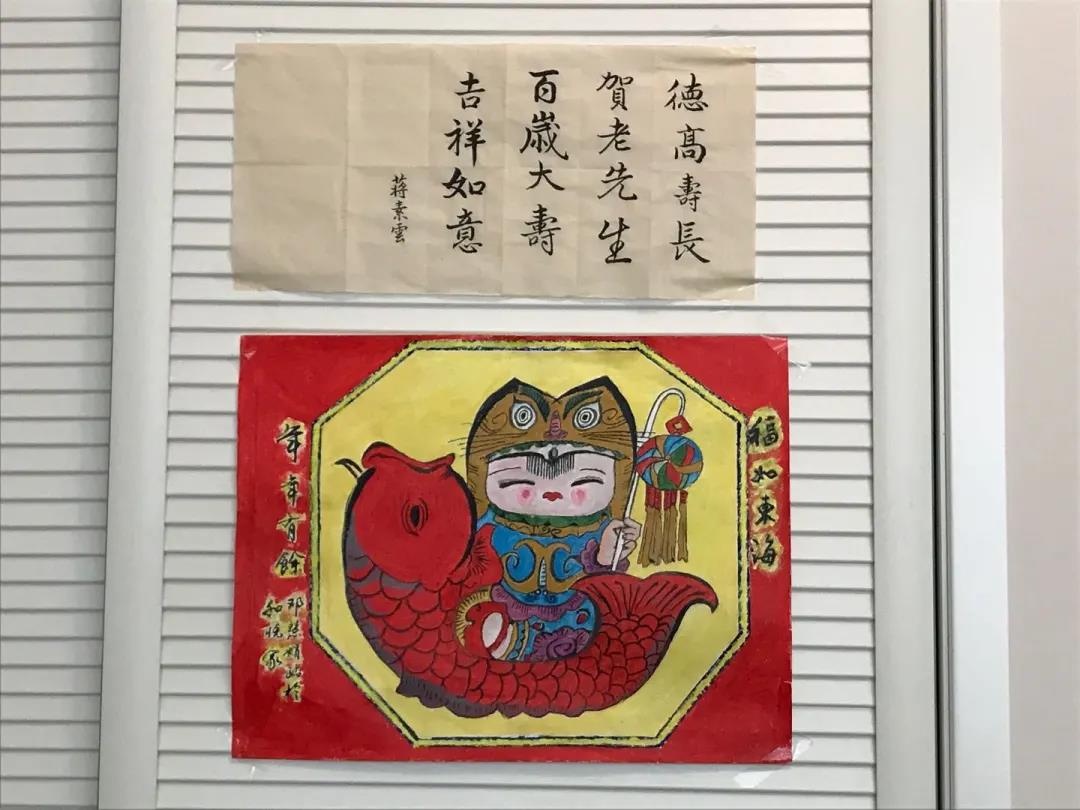 德高壽長
賀老先生
百歲大壽
吉祥如意
蔣素雲
福如東海
年年有餘
和悅家